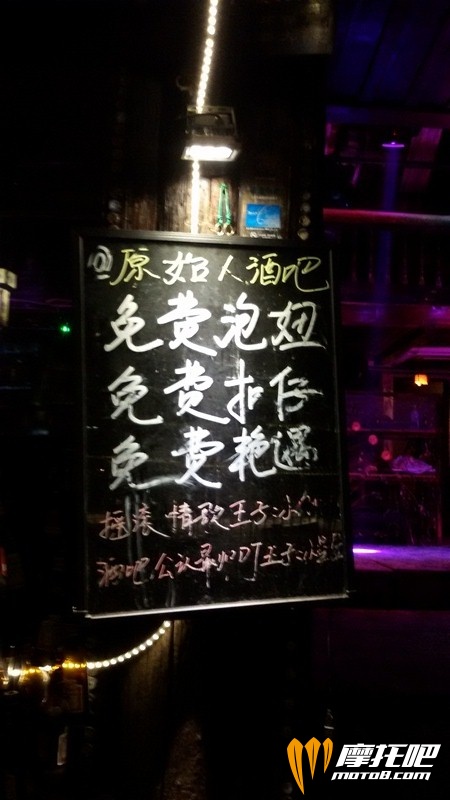 @原始人酒吧
免费泡妞
免费扣仔
免费艳遇
摇滚情歌王子:冰
酒吧公认最帅DJ王子:冰
摩托吧
MOTO8.COM